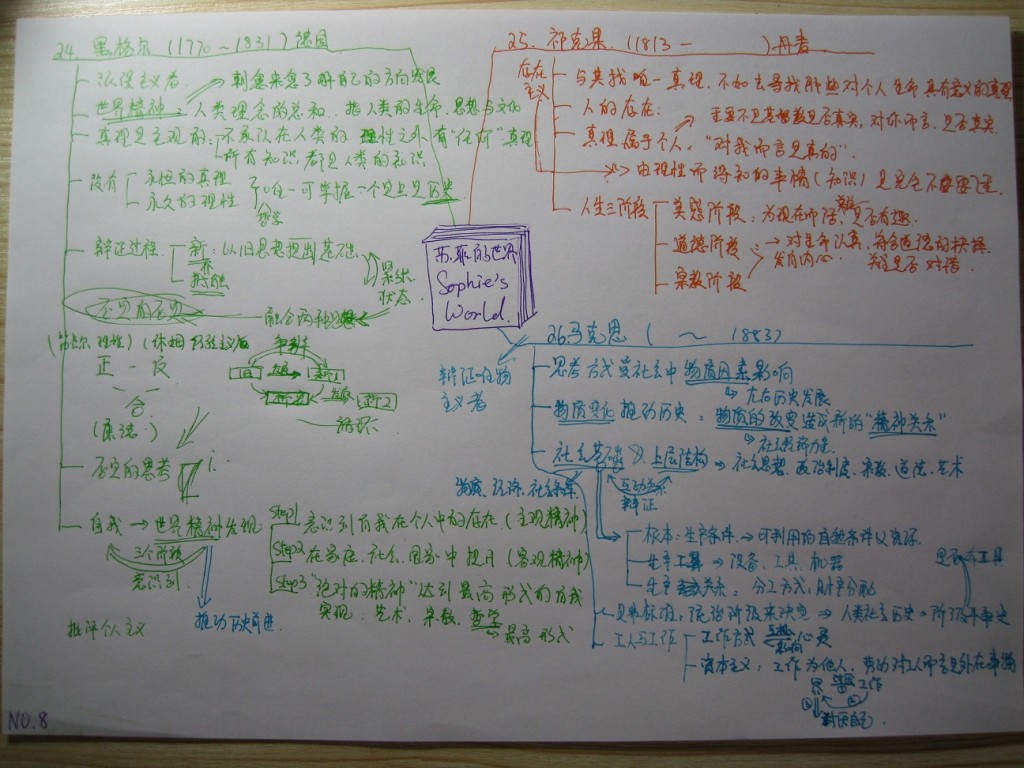 24. 黑格尔 (1770~1831) 德国
浪漫主义者
世界精神 → 人类理念的总和. 指人类的生命、思想与文化
真理是主观的: 不承认在人类的理性之外有“任何”真理
所有知识都是人类的知识
没有
永恒的真理
永久的理性
哲学
唯一可掌握
历史
辩证过程
新: 以旧思想提出
紧张状态
否定的否定
融合两种
正 — 反
合
(康德.)
循环
否定的思考
自我 → 世界精神发现
三个阶段
意识到
推动历史前进.
批评个人主义
Step1 意识到自我在个人中的存在. (主观精神)
Step2 在家庭. 社会. 国家中
(客观精神)
Step3 “绝对的精神”达到最高形式的自我
实现. 艺术、宗教、哲学
→ 最高形式
25. 祁克果. (1813 — ) 丹麦
存在主义
与其找唯一真理. 不如去寻找那些对个人生命具有意义的真理
人的存在:
真理属于个人. “对我而言是真的”.
由理性而得知的事情(知识)是完全不重要
人生三阶段
美感阶段: 为现在而活.
是否有趣.
道德阶段 → 对生命认真.
发自内心.
是否对错
宗教阶段
苏菲的世界
Sophie's
World.
26. 马克思 ( ~ 1883)
辩证唯物主义者
思考方式受社会中物质因素影响
左右历史发展
物质变化推动历史: 物质的改变造成新的“精神关系”
社会基础
上层结构 → 社会思想. 政治制度、宗教、道德、艺术
物质、经济、社会条件
互动关系
辩证
根本: 生产条件 → 可利用的自然条件与资源
生产工具 → 设备、工具、机器
生产关系: 分工方式, 财产分配
是非标准: 统治阶级来决定 → 人类社会历史 = 阶级斗争史
工人与工作
工作方式
影响
心灵
资本主义: 工作为他人; 劳动对工人而言是外在事物
工作
NO.8